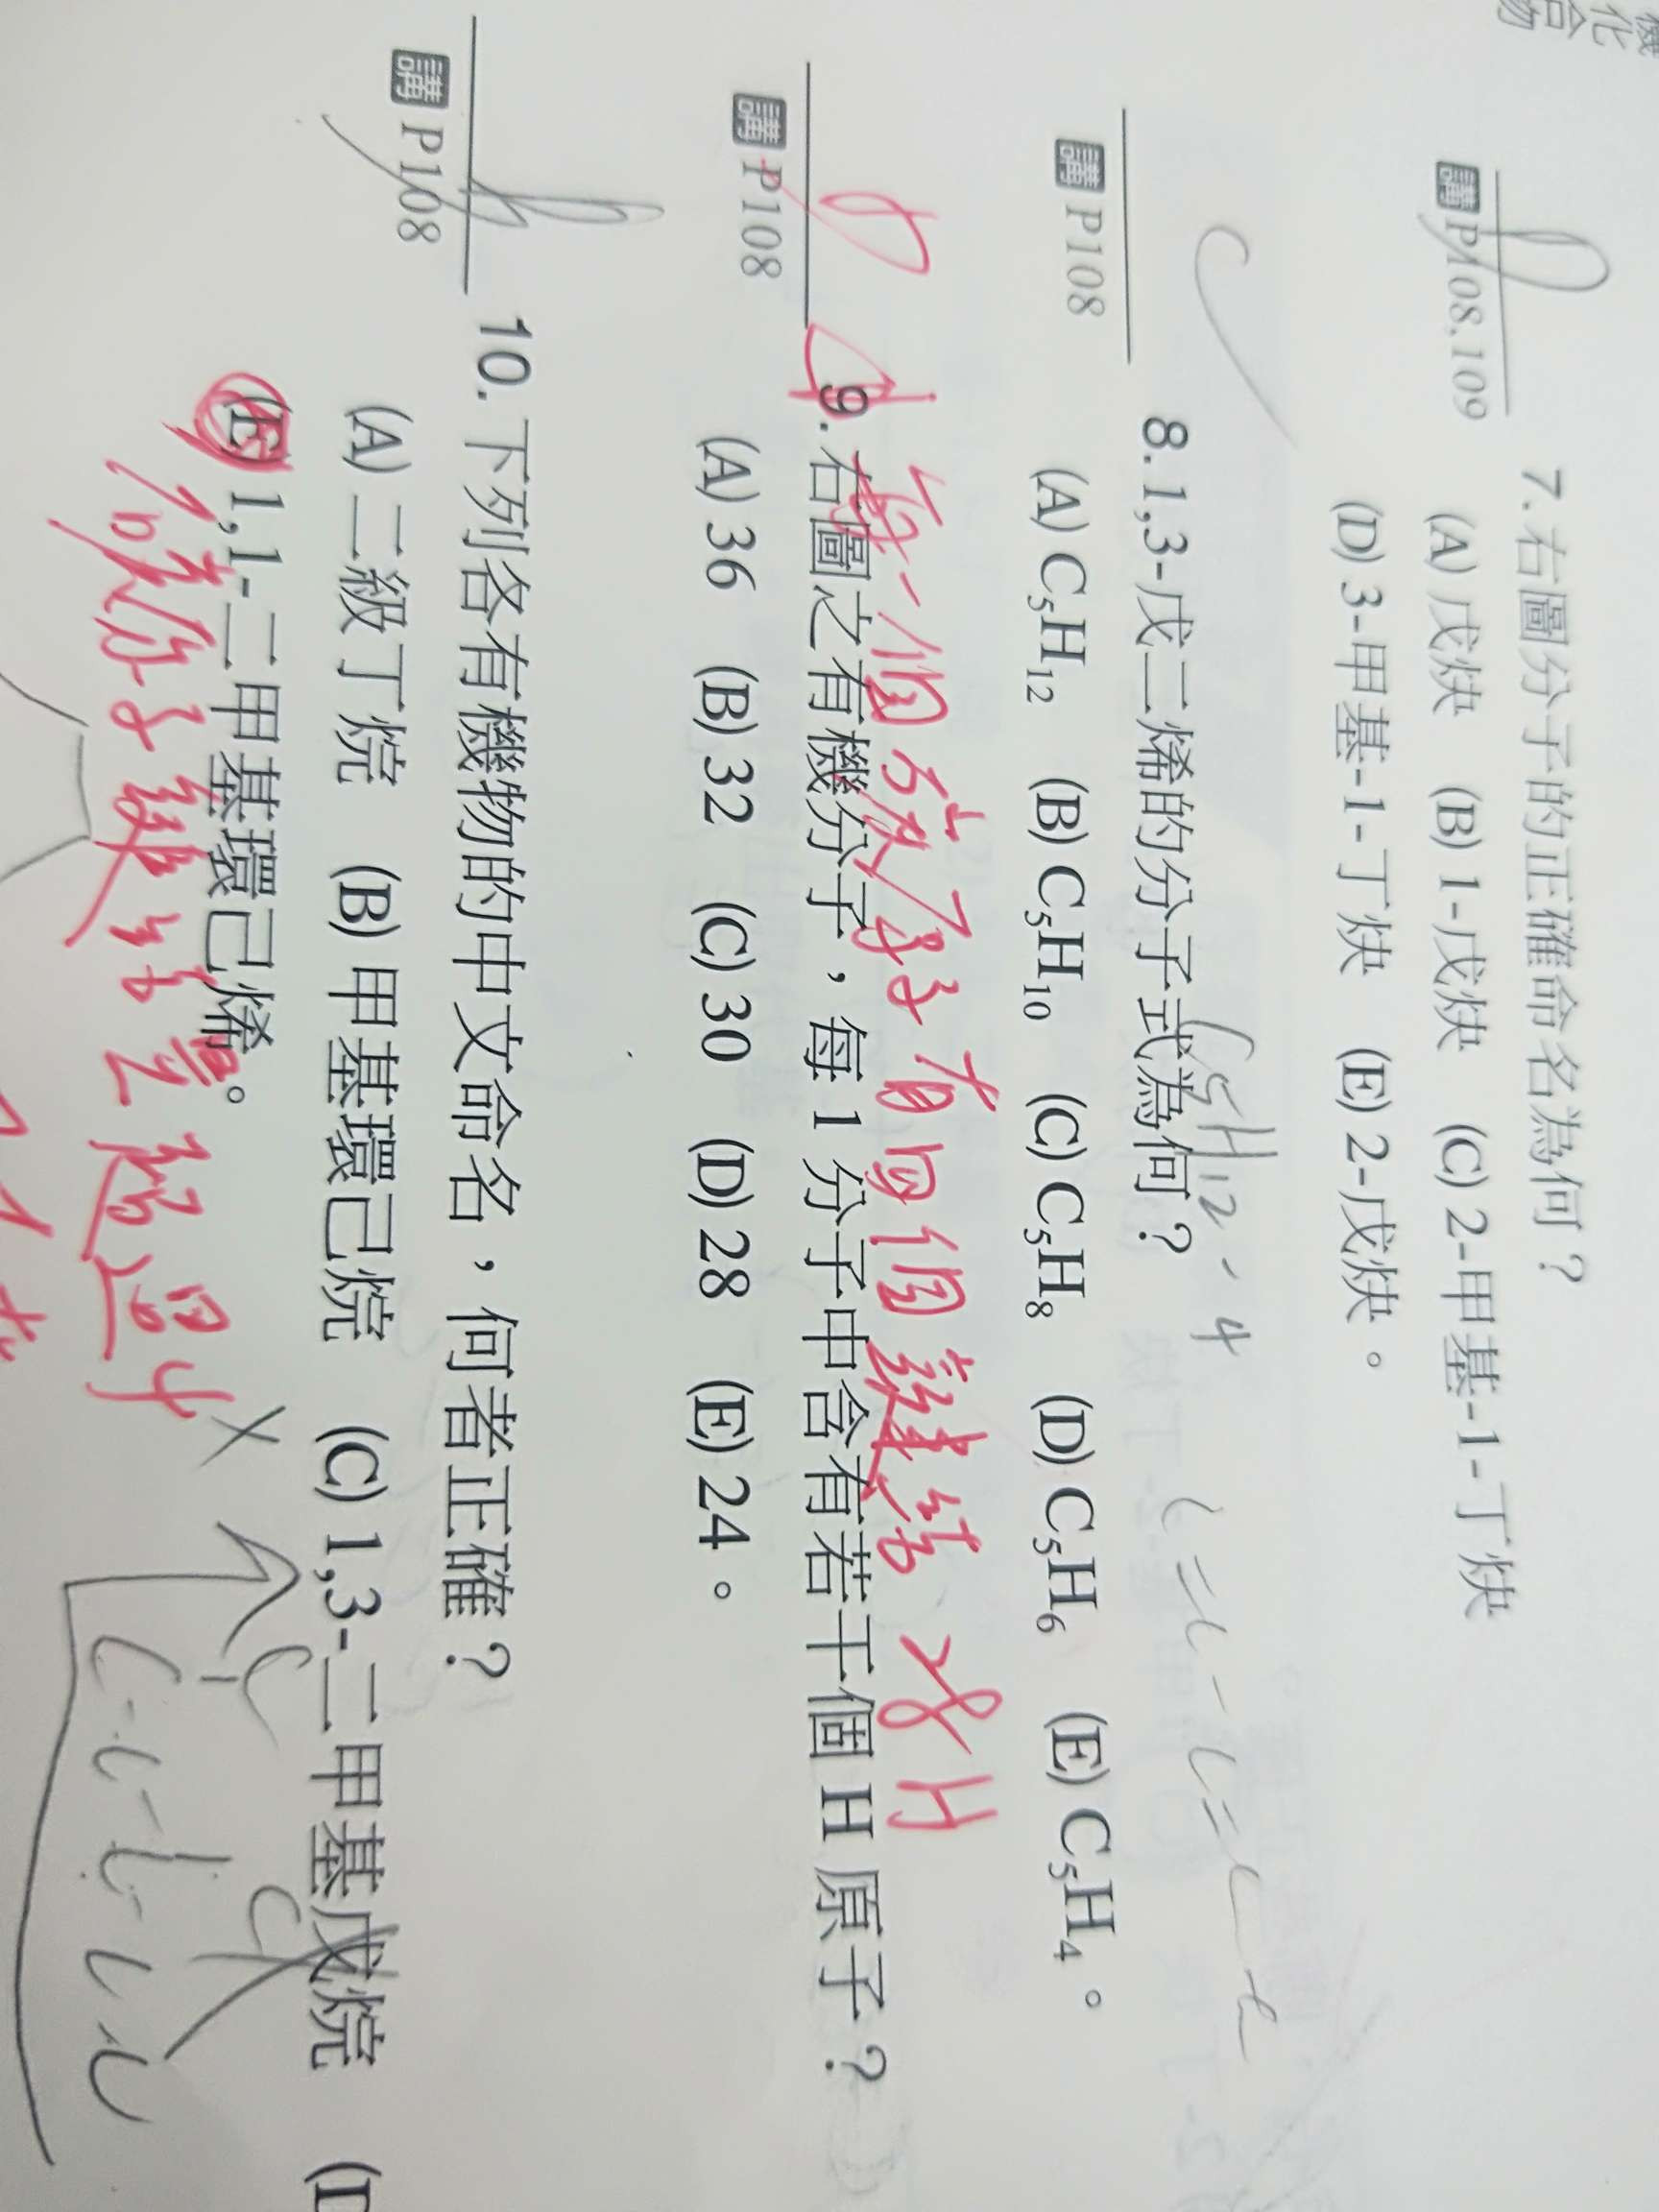 機
化
合
物
講 P108,109
7. 右圖分子的正確命名為何？
(A) 戊炔 (B) 1-戊炔 (C) 2-甲基-1-丁炔
(D) 3-甲基-1-丁炔 (E) 2-戊炔。
C
講 P108
C5H12-4
C=C-C=C-C
8. 1,3-戊二烯的分子式為何？
(A) C₅H₁₂ (B) C₅H₁₀ (C) C₅H₈ (D) C₅H₆ (E) C₅H₄。
D
講 P108
每一個碳原子有四個鍵結 28H
9. 右圖之有機分子，每 1 分子中含有若干個 H 原子？
(A) 36 (B) 32 (C) 30 (D) 28 (E) 24。
講 P108
10. 下列各有機物的中文命名，何者正確？
(A) 二級丁烷 (B) 甲基環己烷 (C) 1,3-二甲基戊烷 (D
(E) 1,1-二甲基環己烯。
碳原子鍵結量超過4
C-C-C-C-C